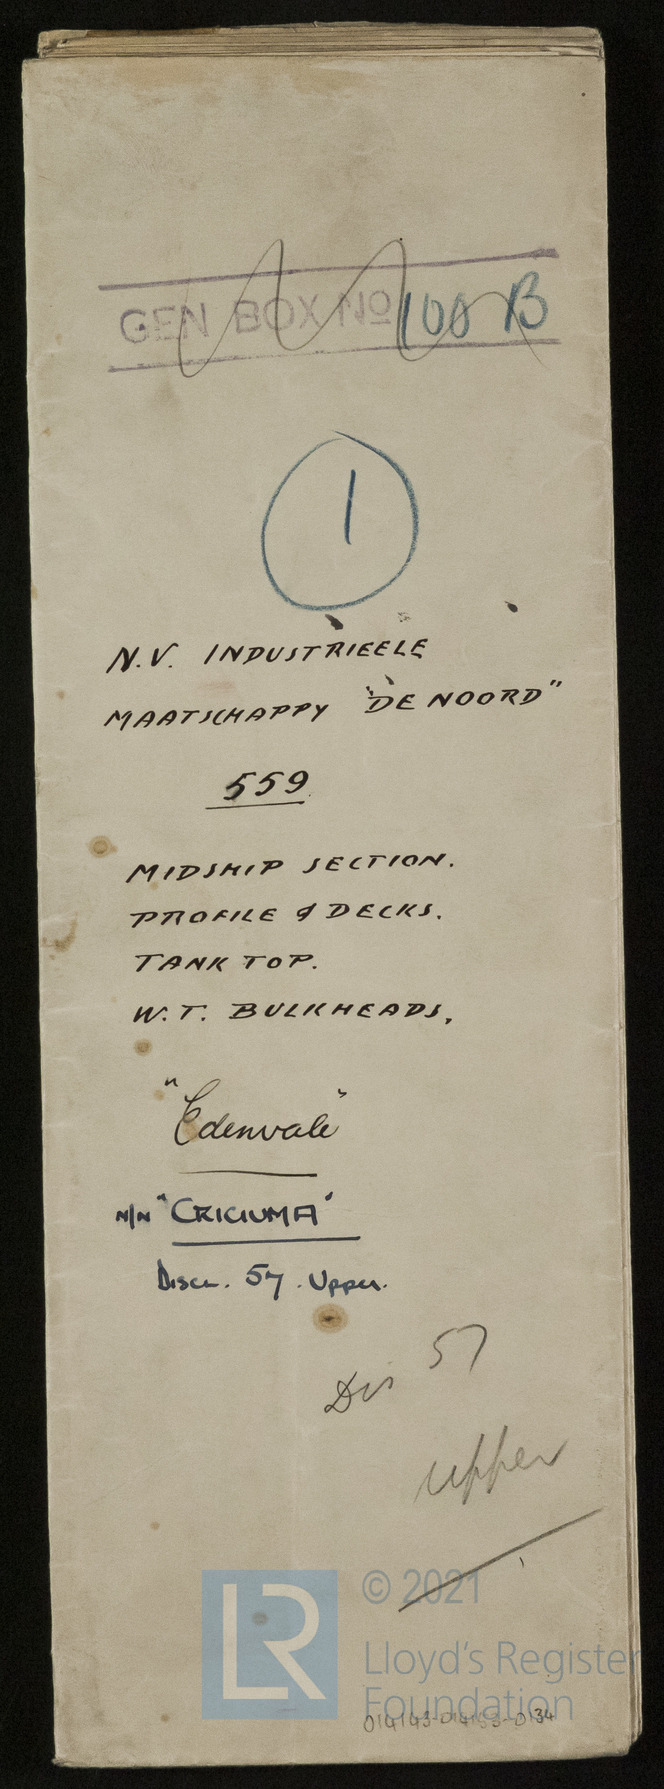 GEN BOX No 100 B
1
N.V. INDUSTRIEELE
MAATSCHAPPY "DE NOORD"
559
MIDSHIP SECTION.
PROFILE & DECKS.
TANK TOP.
W.T. BULKHEADS.
"Edenvale"
N/N "CRICIUMA"
Discl. 57. Upper.
Dis 57
upper
LR
© 2021
Lloyd's Register
Foundation
014143-014153-0134